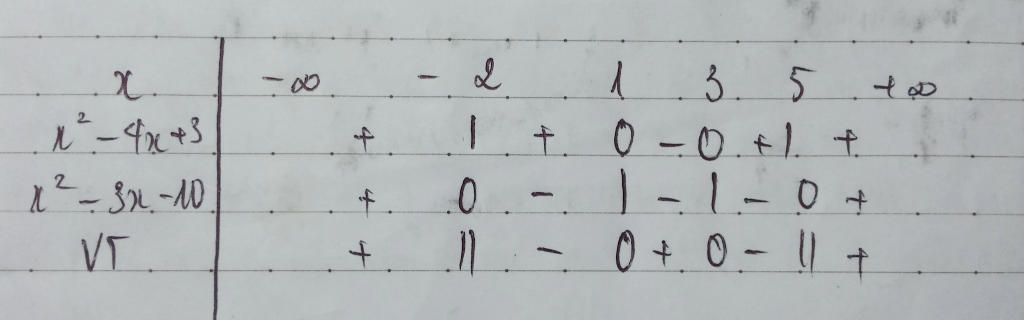 x -∞ - 2 1 3 5 +∞
x² - 4x + 3 + | + 0 - 0 + | +
x² - 3x - 10 + 0 - | - | - 0 +
VT + || - 0 + 0 - || +